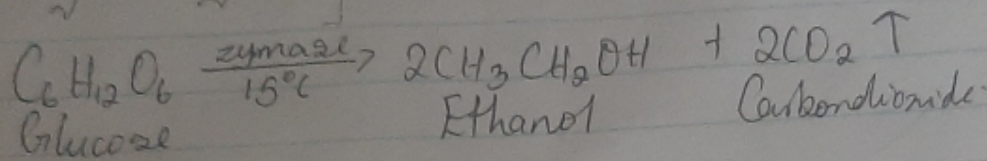 C₆H₁₂O₆ zymase 2CH₃CH₂OH + 2CO₂ ↑
15°C
Glucose Ethanol Carbondioxide